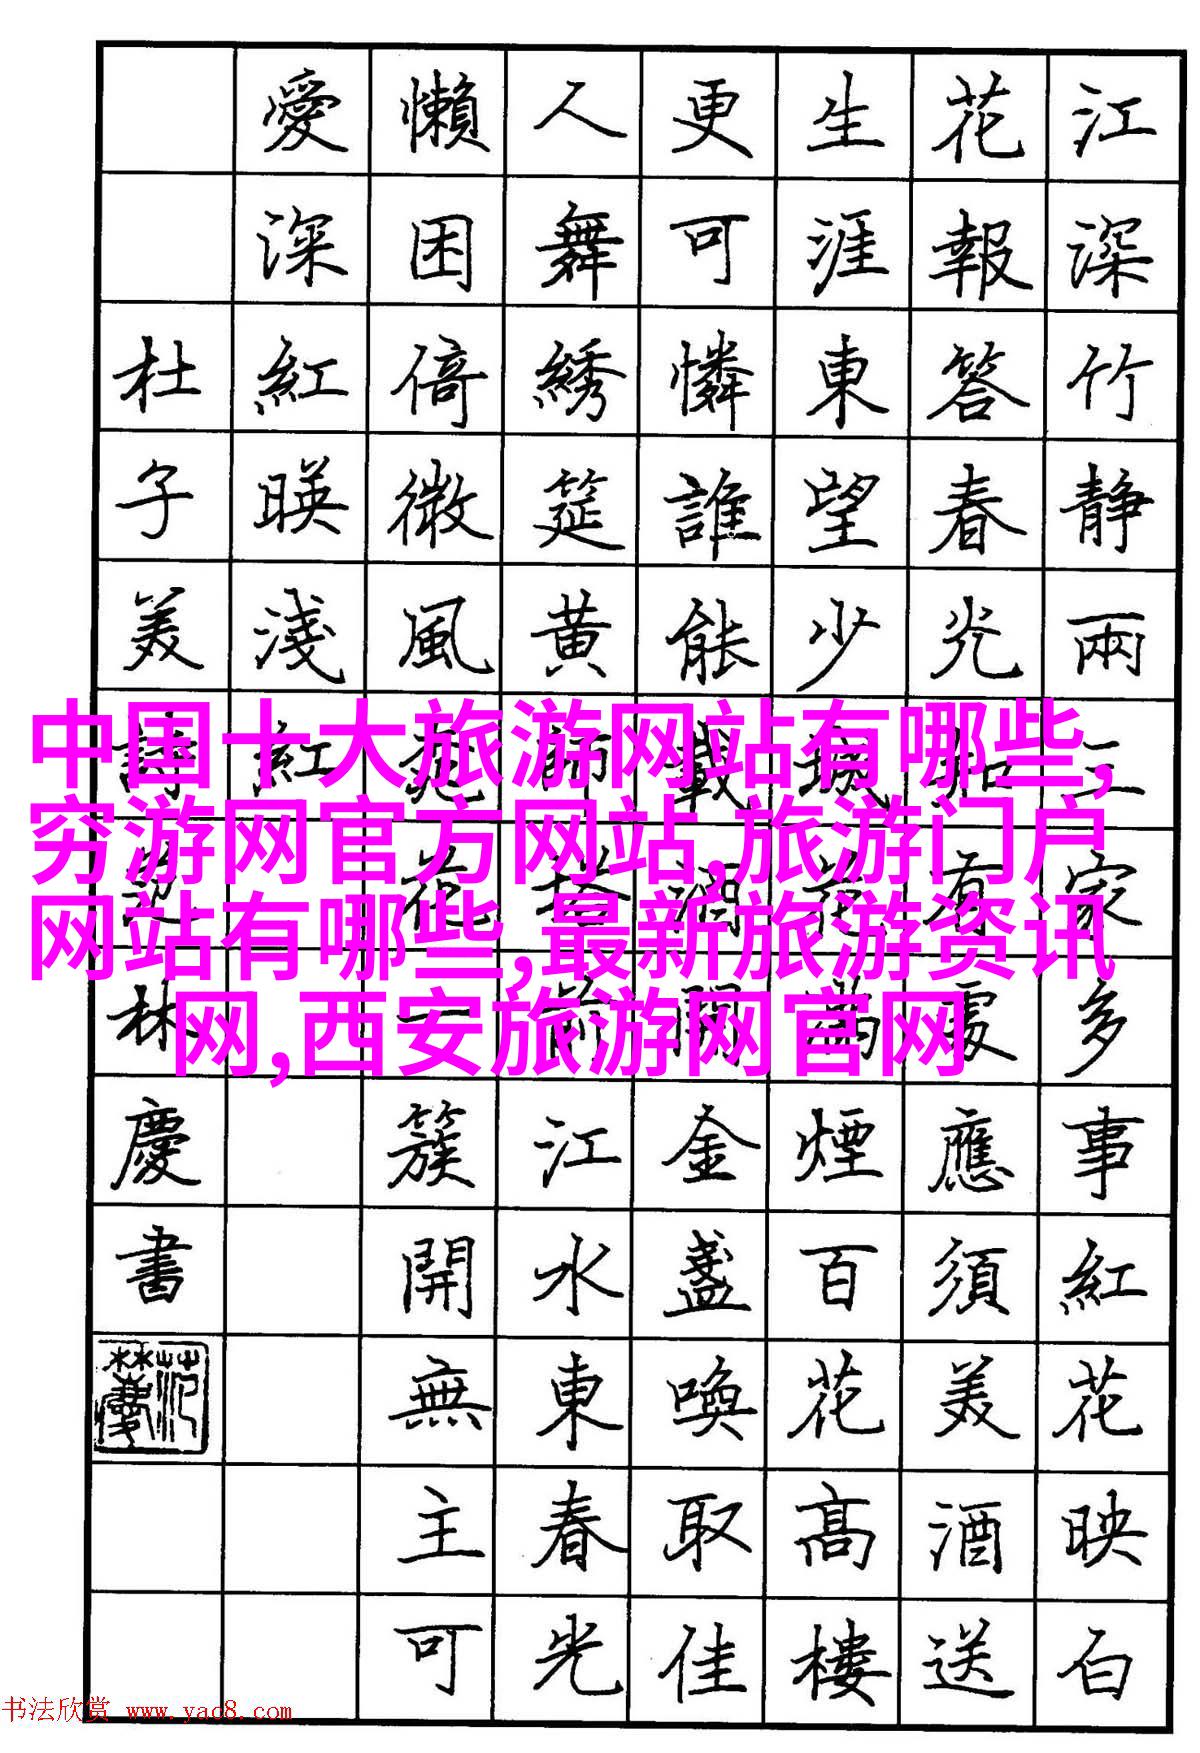 江深竹静兩三家多事紅花映白
花報答春光知有處應須美酒送
生涯東望少城花滿煙百花高樓
更可憐誰能載酒開金盞喚取佳
人舞綉筵黄師塔前江水東春光
懶困倚微風桃花一簇開無主可
愛深紅暎淺紅
杜子美詩范林慶書
中国十大旅游网站有哪些,
穷游网官方网站,旅游门户
网站有哪些,最新旅游资讯
网,西安旅游网官网
书法欣赏 www.yac8.com